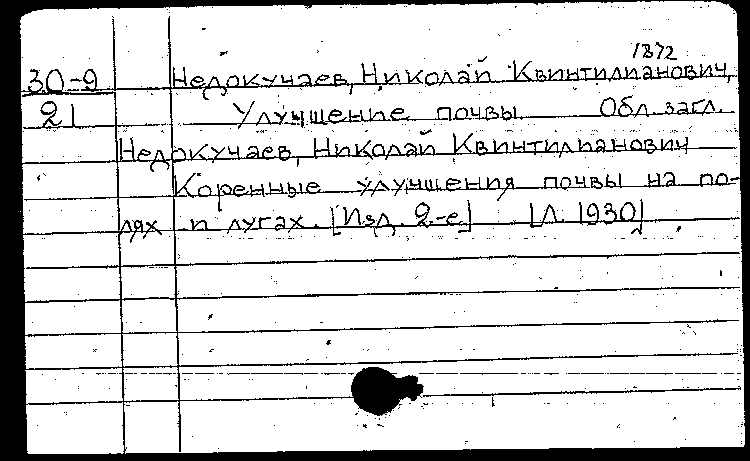 1872
30-9 Недокучаев, Николай Квинтилианович,
21 Улучшение почвы Обл. загл.
Недокучаев, Николай Квинтилианович
Коренные улучшения почвы на по-
лях и лугах. [Изд. 2-е] [Л. 1930]